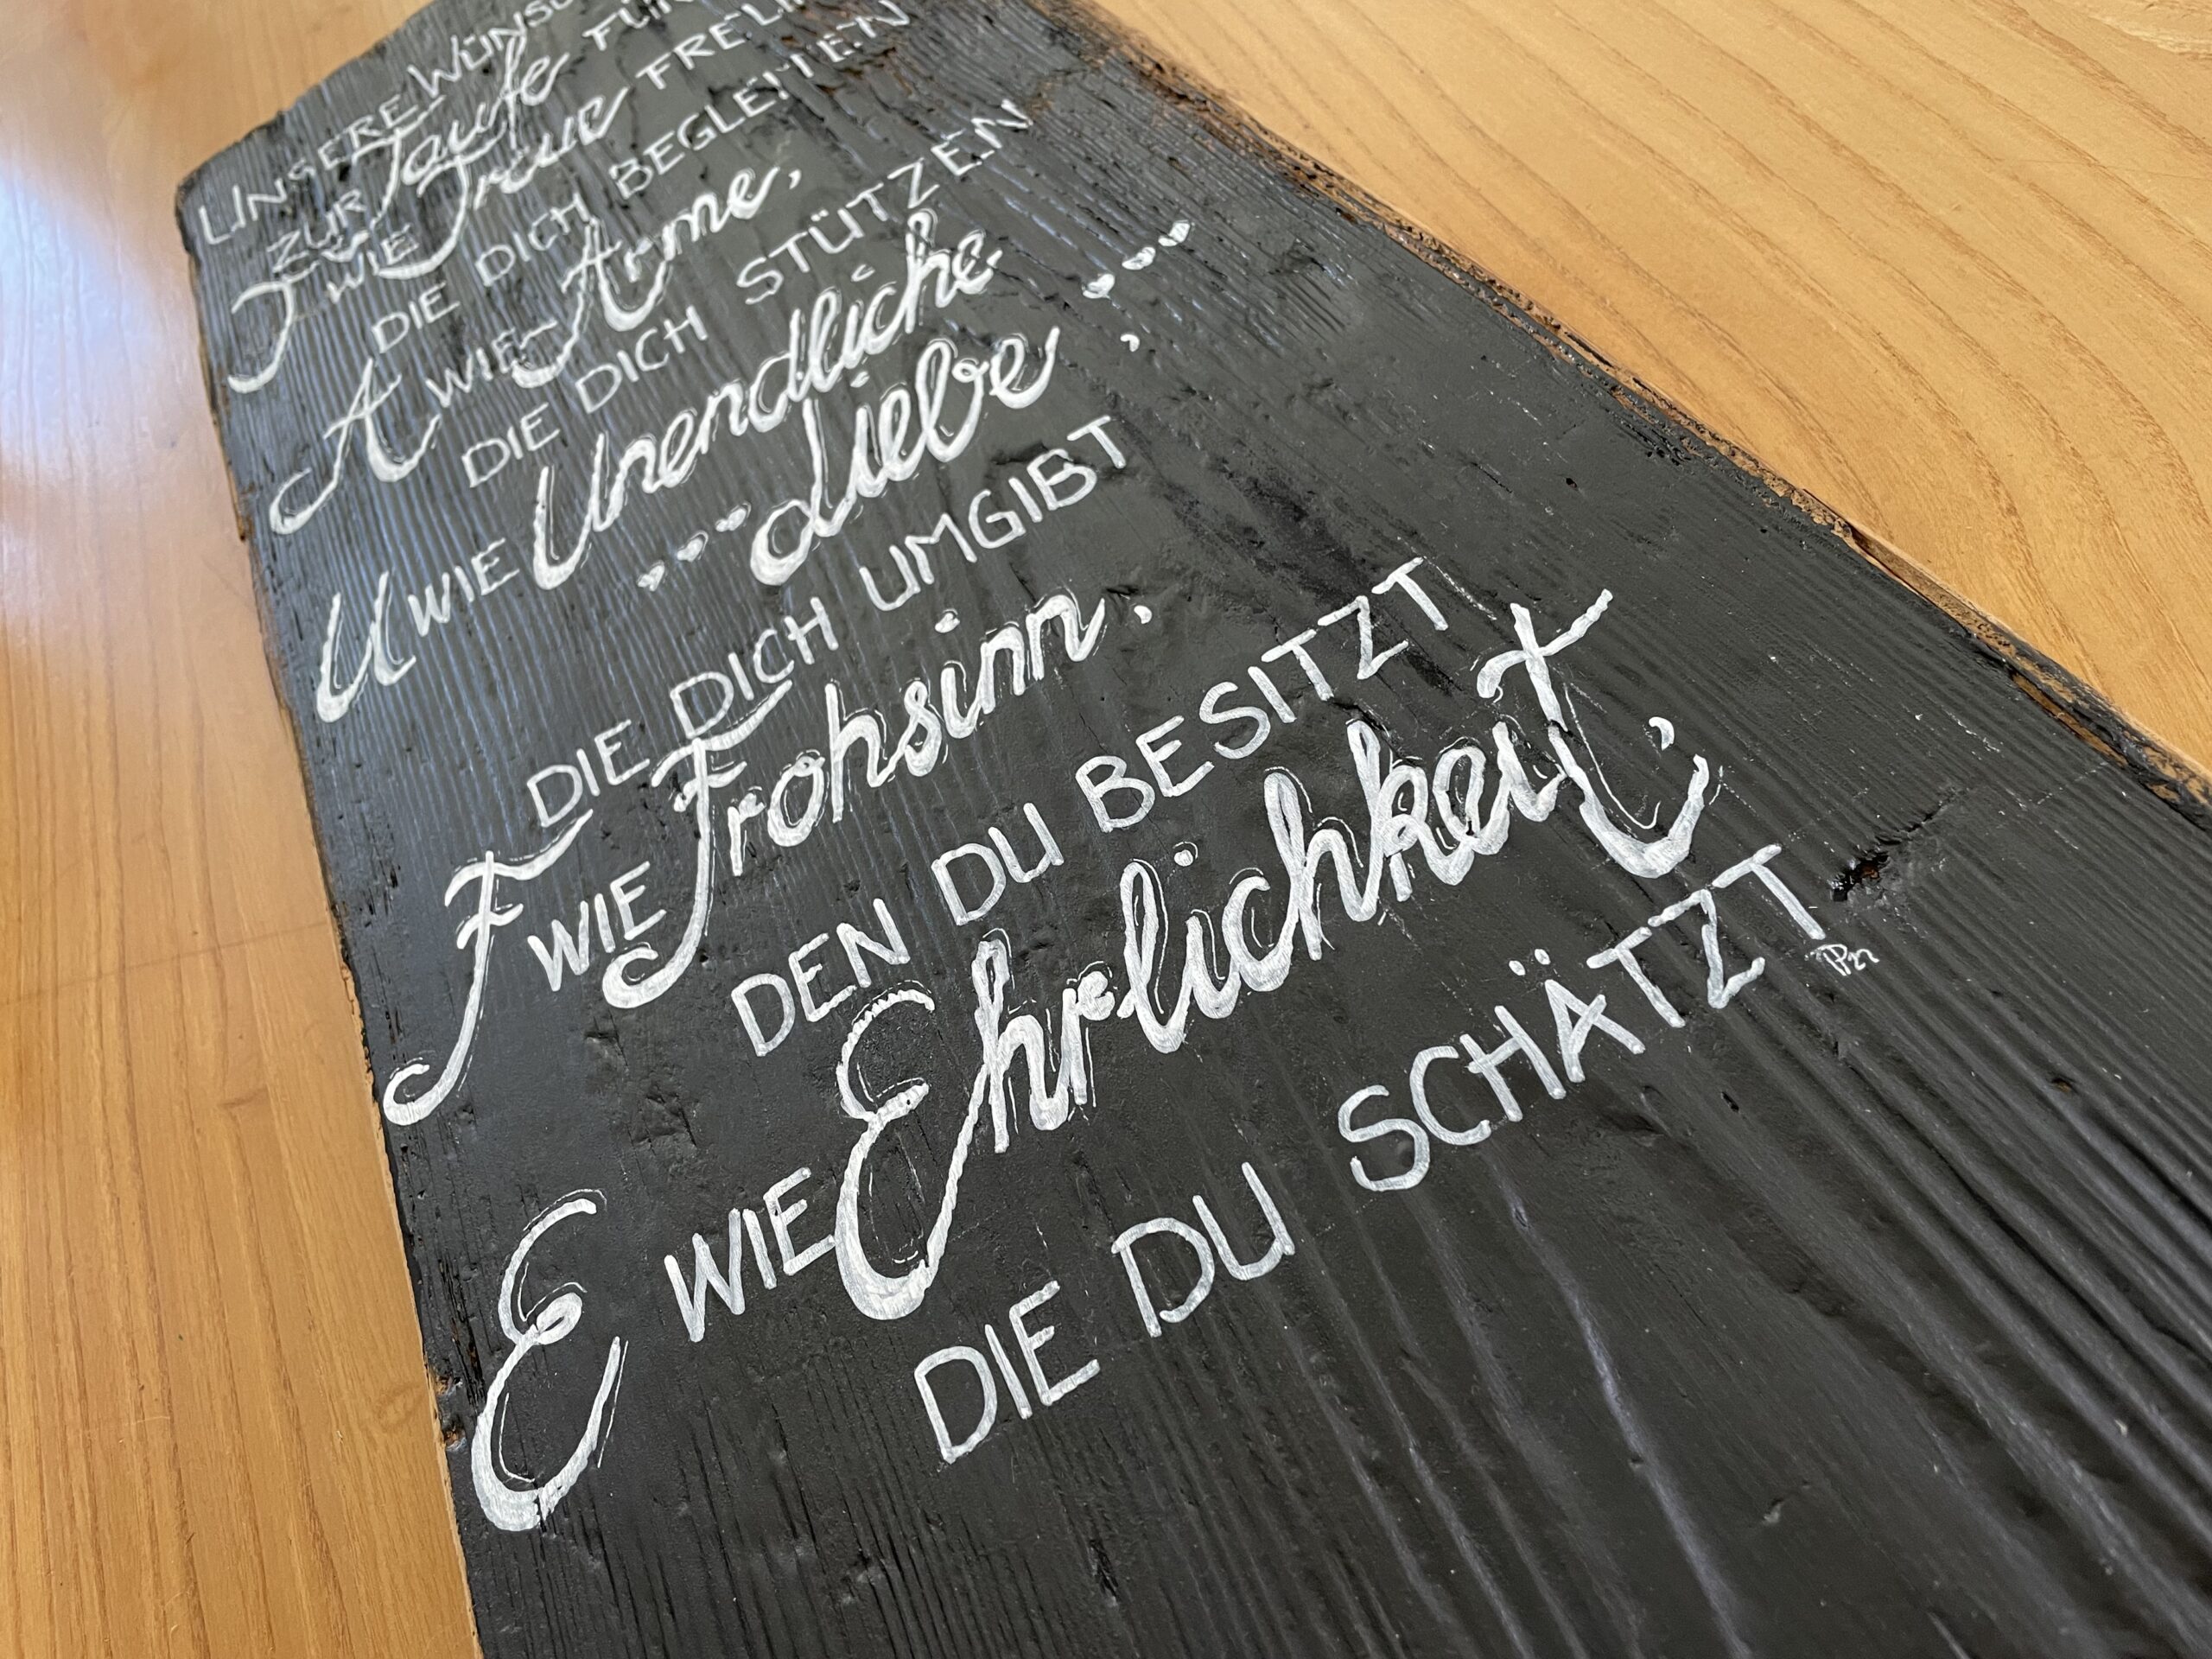 UNSERE
ZUR Taufe
T WIE Treue
DIE DICH BEGLEITEN
A WIE Arme,
DIE DICH STÜTZEN
U WIE Unendliche
Liebe,
DIE DICH UMGIBT
F WIE Frohsinn,
DEN DU BESITZT
E WIE Ehrlichkeit,
DIE DU SCHÄTZT